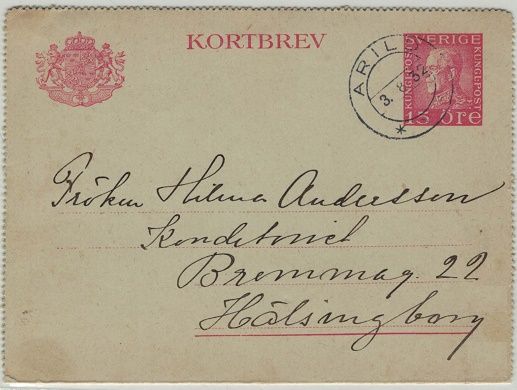 KORTBREV
SVERIGE
KUNGL·POST
KUNGL·POST
15 ÖRE
ARILD
3. 8. 32
Fröken Hilma Andersson
Konditoriet
Bremmag. 22
Hälsingborg